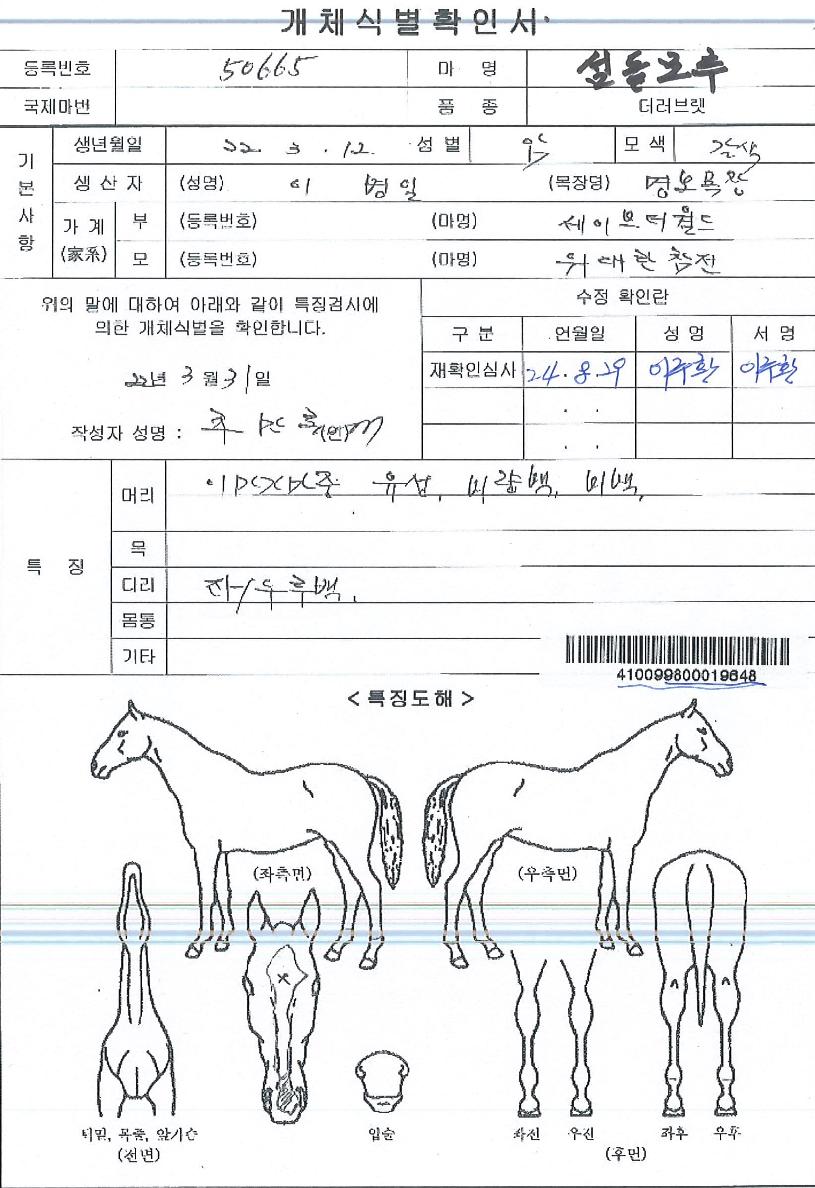 개체식별확인서
등록번호 50665 마 명
국제마번 품 종 더러브렛
기본사항
생년월일 22. 3 . 12. 성 별 암 모 색 갈색
생 산 자 (성명) 이 병일 (목장명) 명보목장
가 계 (家系) 부 (등록번호) (마명) 세이브더월드
모 (등록번호) (마명) 위대한참전
위의 말에 대하여 아래와 같이 특징검시에
의한 개체식별을 확인합니다.
22년 3 월 31 일
작성자 성명 : (인)
수정 확인란
구 분 연월일 성 명 서 명
재확인심사 24. 8. 29 이주환 이주환
. .
. .
특 징
머리 유성, 비량백, 비백,
목
다리 좌/우후백,
몸통
기타
410099800019648
< 특징도해 >
(좌측면) (우측면)
턱밑, 목줄, 앞가슴
(전면)
입술
좌전 우전 좌후 우후
(후면)